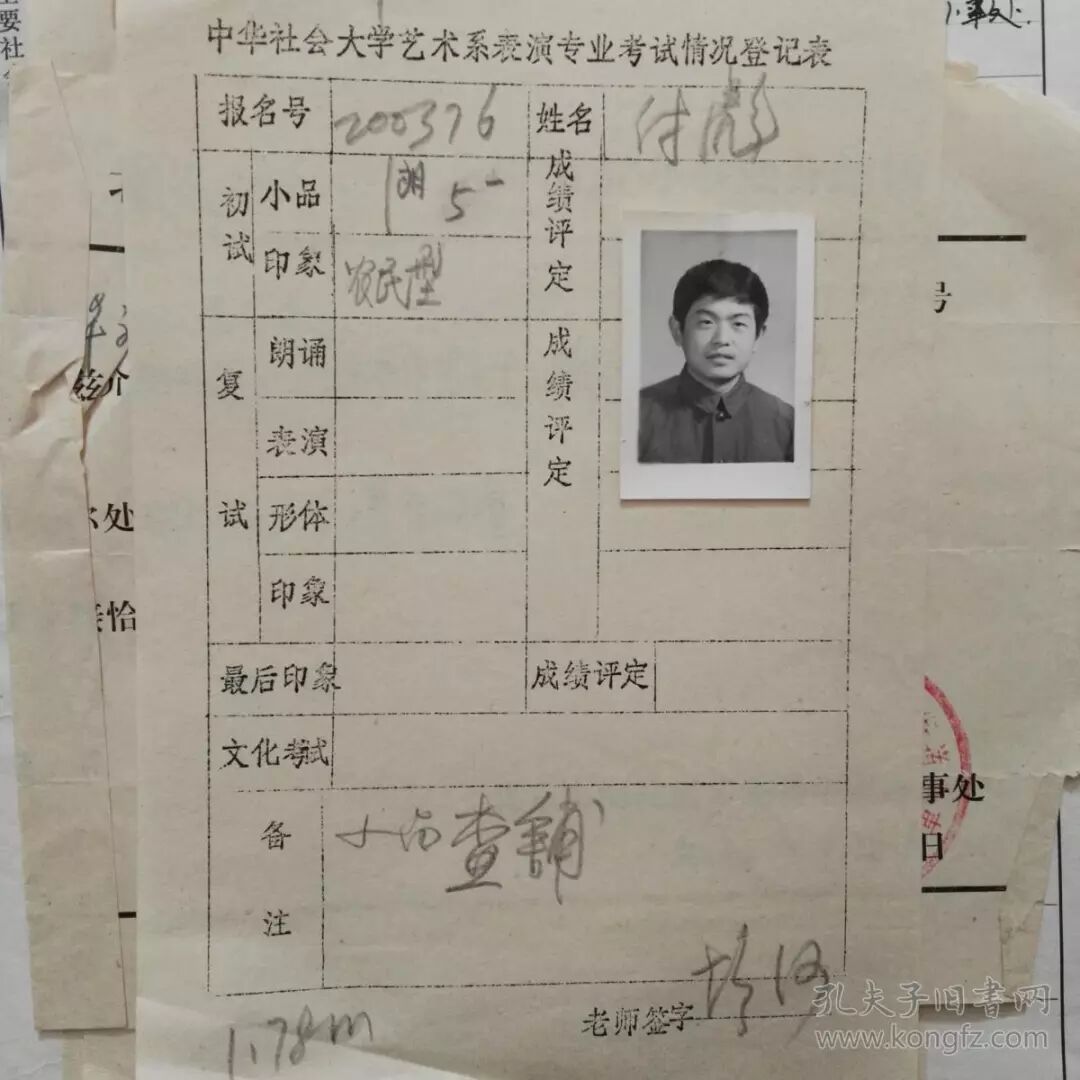 要
社
事处.
中华社会大学艺术系表演专业考试情况登记表
报名号 200376 姓名 付彪
初试 小品 朗 5- 成绩评定
印象 农民型
复试 朗诵 成绩评定
表演
形体
印象
最后印象 成绩评定
文化考试
备注 小品查铺
老师签字
1.78m
号
介
处
怡
事处
日
孔夫子旧书网
www.kongfz.com